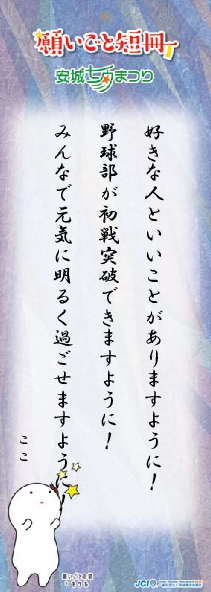 願いごと短冊
安城七夕まつり
好きな人といいことがありますように！
野球部が初戦突破できますように！
みんなで元気に明るく過ごせますように
ここ
願いごと妖精
きーぼー
JCI